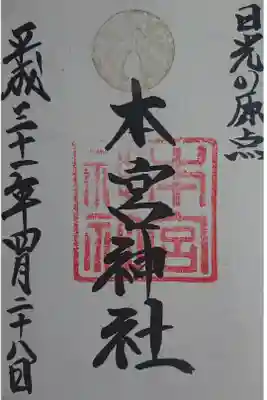 日光の原点
本宮神社
本宮神社
平成三十一年四月二十八日